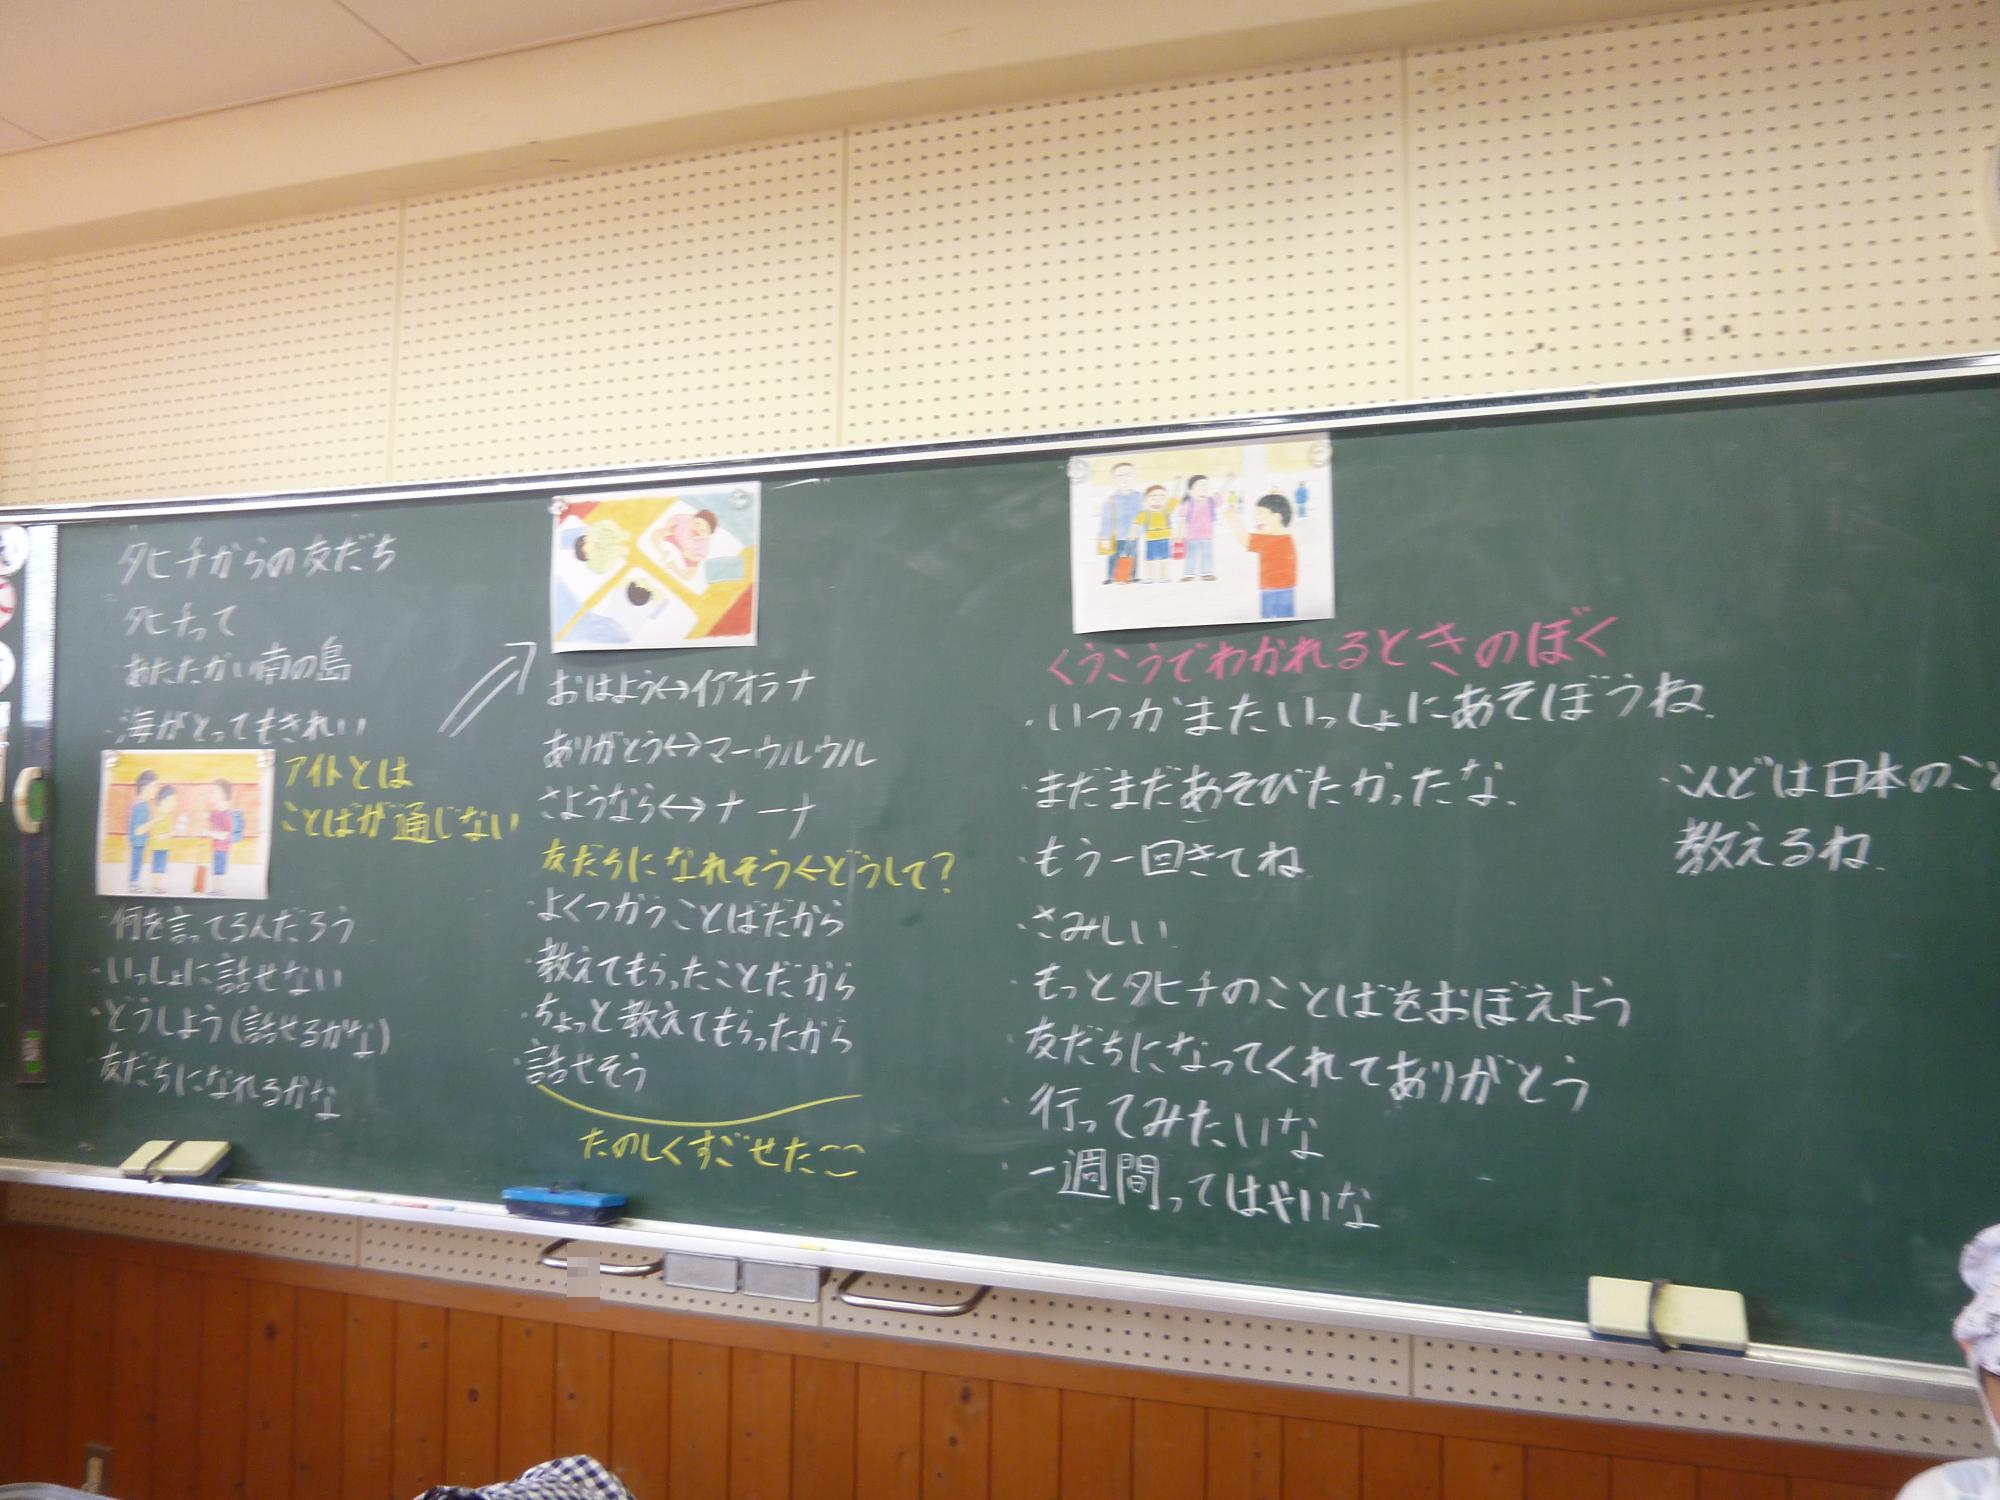 タヒチからの友だち
タヒチって
あたたかい南の島
・海がとってもきれい
アイトとは
ことばが通じない
・何を言ってるんだろう
・いっしょに話せない
・どうしよう(話せるかな)
・友だちになれるかな
おはよう↔イアオラナ
ありがとう↔マーウルウル
さようなら↔ナーナ
友だちになれそう←どうして?
・よくつかうことばだから
・教えてもらったことだから
・ちょっと教えてもらったから
・話せそう
たのしくすごせた
くうこうでわかれるときのぼく
・いつかまたいっしょにあそぼうね
・まだまだあそびたかったな
・もう一回きてね
・さみしい
・もっとタヒチのことばをおぼえよう
・友だちになってくれてありがとう
・行ってみたいな
・一週間ってはやいな
・こんどは日本のこと
教えるね